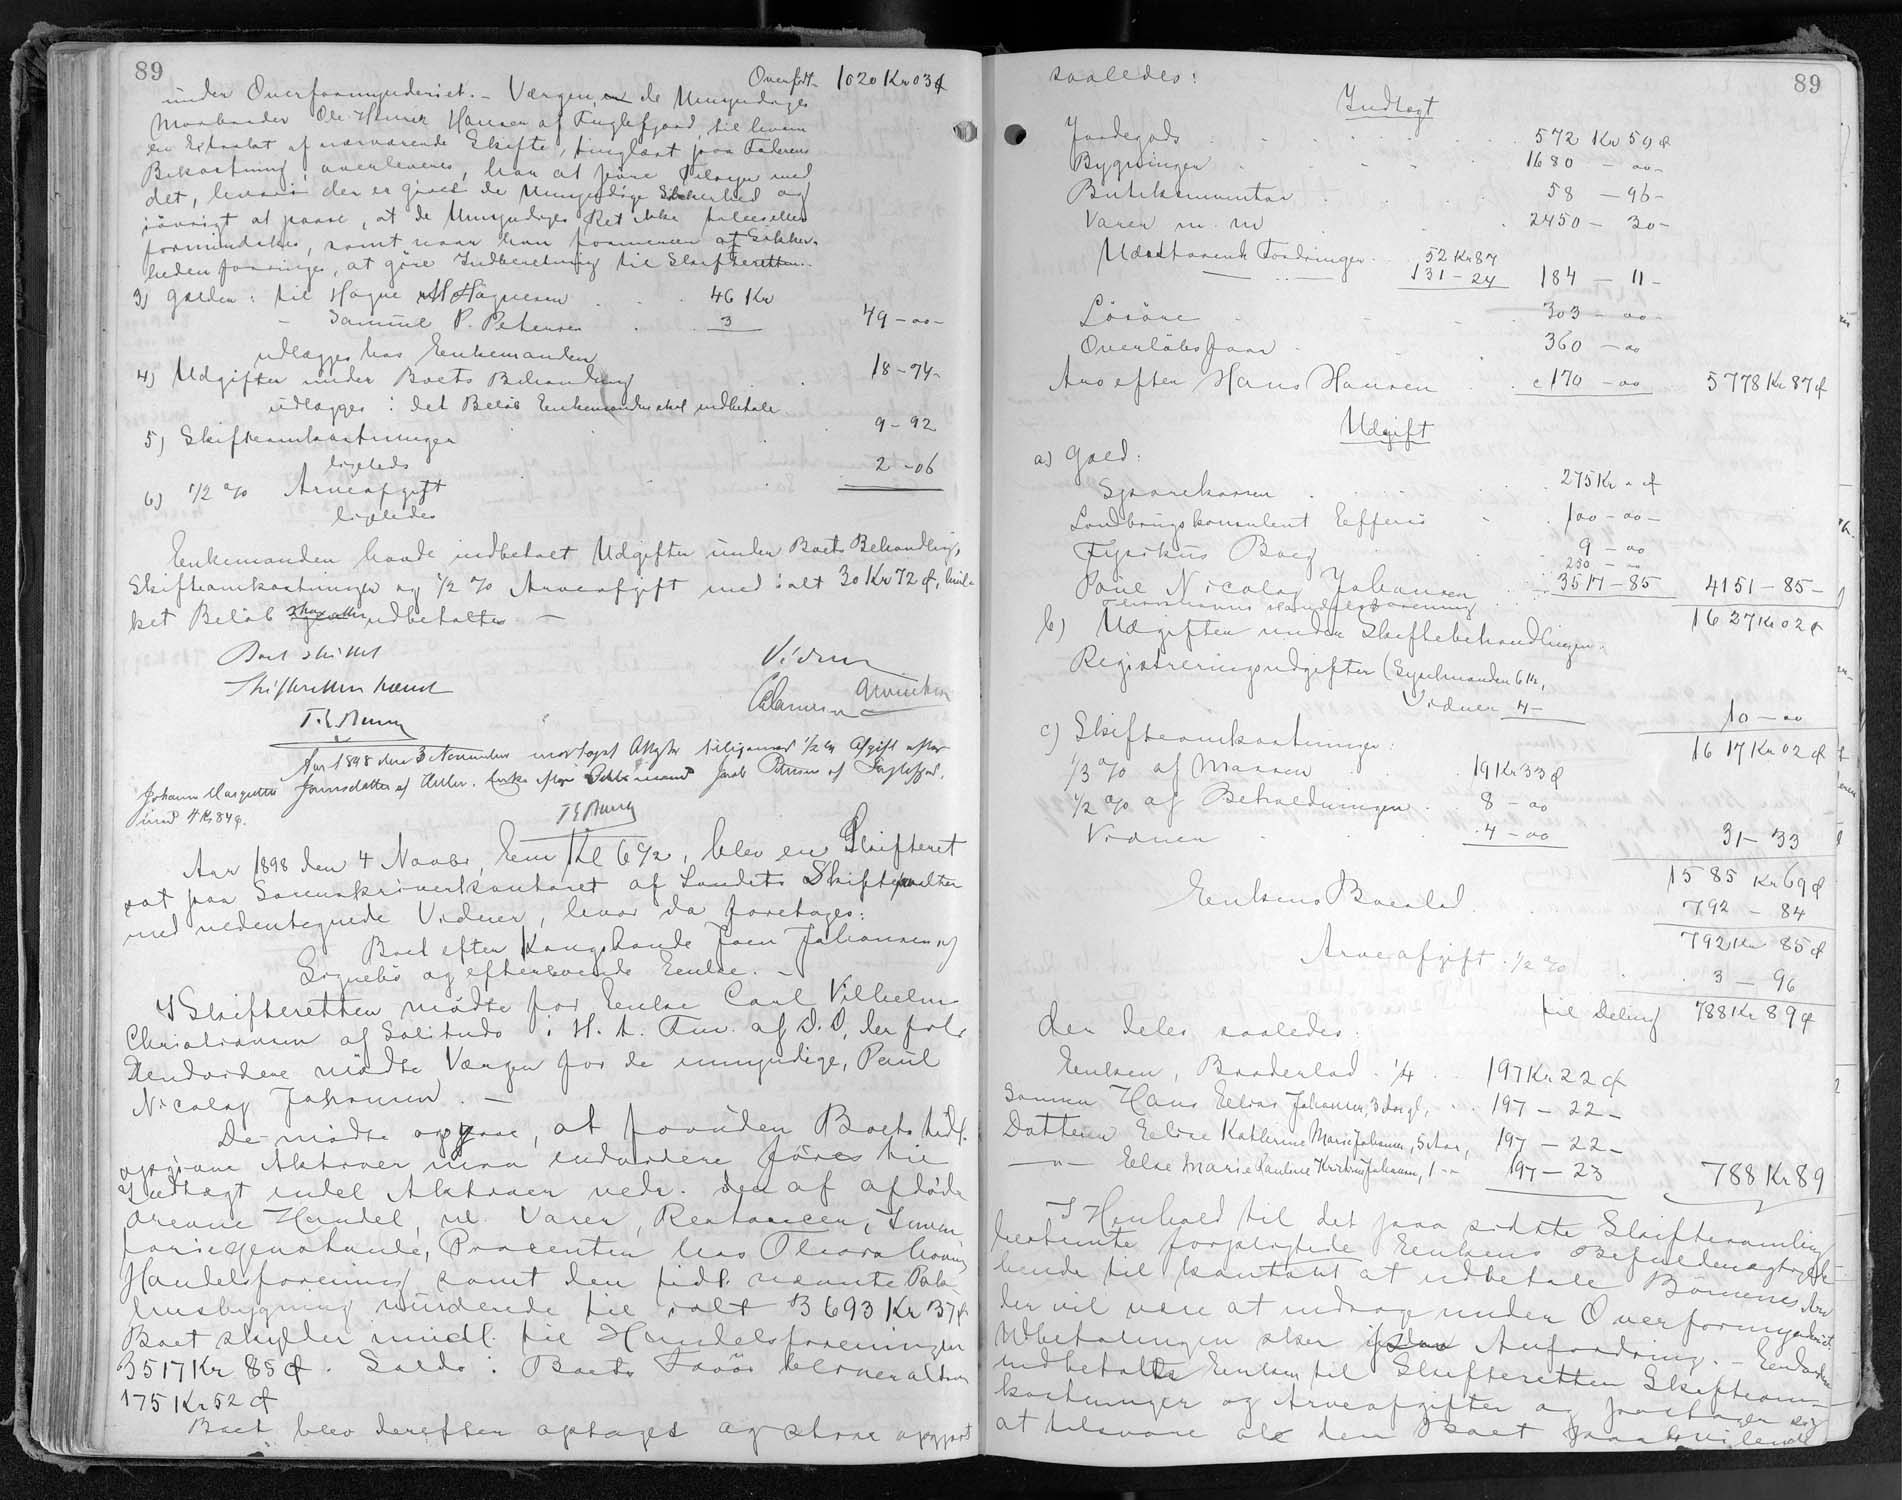 89
Overført 1020 Kr 03 ¢
under Overformynderiet. – Værgen, de Umyndiges
Morbroder Ole Hansen af Fuglefjord, til hvem
en Extract af nærværende Skifte, tinglæst paa Faderens
Bekostning, overleveres, har at føre Tilsyn med
det, hvori der er givet de Umyndige Sikkerhed og
iøvrigt at paase, at de Umyndiges Ret ikke
formindskes, samt naar han formener at Sikker-
heden forringes, at göre Indberetning til Skifteretten.
3) Gælden: til Hogne Högnesen . . 46 Kr
– Samuel P. Petersen . 3 49 – oo –
udlægges hos Enkemanden
4) Udgifter under Boets Behandling . 18 – 74 –
udlægges i det Beløb Enkemanden skal indbetale
5) Skifteomkostninger . . 9 – 92
ligeleds
6) 1/2 % Arveafgift . . 2 – 06
ligeledes
Enkemanden havde indbetalt Udgifter under Boets Behandling,
Skifteomkostninger og 1/2 % Arveafgift med ialt 30 Kr 72 ¢, hvil-
ket Beløb udbetaltes –
Boet sluttet
Skifteretten hævet
Vidner
Aar 1898 den 3 November modtaget 1/2 % Afgift efter
Johanne Margrethe Joensdatter af Hellur, Enke efter Jacob Petersen af Fuglefjord,
med 4 Kr 84 ¢.
Aar 1898 den 4 Novbr, Em Kl 6 1/2, blev en Skifteret
sat paa Sorenskriverkontoret af Landets Skifteforvalter
med nedentegnede Vidner, hvor da foretoges:
Boet efter Kongsbonde Joen Johannesen af
Signebö og efterlevende Enke. –
I Skifteretten mødte for Enken Carl Vilhelm
Christiansen af Solitudo i H. t. Fm. af D. D., der folr
Endvidere mødte Værgen for de umyndige, Paul
Nicolay Johansen. –
De mødte opgave, at foruden Boets tidl.
opgivne Aktiver maa endvidere føres til
Indtægt endel Aktiver vedr. den af afdøde
drevne Handel, nl. Varer, Restancer, Inven-
tariegenstande, Procenten hos Thorshavns
Handelsforening samt den tidl. nævnte Pak-
husbygning vurderede til ialt 3693 Kr 37 ¢
Boet skylder imidl. til Handelsforeningen
3517 Kr 85 ¢. Saldo i Boets Favör bliver altsaa
175 Kr 52 ¢
Boet blev derefter optaget og strax opgjort
89
saaledes:
Indtægt
Jordegods . . . 572 Kr 50 ¢
Bygninger . . . 1680 – oo –
Butiksinventar . . . 58 – 96 –
Varer m. m . . . 2450 – 30 –
Udestaaende Fordringer . 52 Kr 87
131 – 24 184 – 11 –
Løsøre . . . 303 – oo –
Overløbsfaar . . . 360 – oo
Arv efter Hans Hansen . . c 170 – oo 5778 Kr 87 ¢
Udgift
a.) Gæld:
Sparekassen . . . 275 Kr „ ¢
Landbrugskonsulent Effersö . 100 – oo –
Fysikus Boeg . . 9 – oo
Poul Nicolay Johansen . . 250 – oo
Thorshavns Handelsforening . . 3517 – 85 4151 – 85 –
1627 Kr 02 ¢
b) Udgifter under Skiftebehandlingen:
Registreringsudgifter (Sysselmanden 6 Kr,
Vidner 4 – 10 – oo
1617 Kr 02 ¢
c) Skifteomkostninger:
1/3 % af Massen . . 19 Kr 33 ¢
1/2 % af Beholdningen . 8 – oo
Vidner . . 4 – oo 31 – 33
1585 Kr 69 ¢
Enkens Boeslod . . 792 – 84
792 Kr 85 ¢
Arveafgift 1/2 % . . 3 – 96
til Deling 788 Kr 89 ¢
der deles saaledes:
Enken, Broderlod . 1/4 . . 197 Kr 22 ¢
Sønnen Hans Elias Johansen, 3 Aar gl, . . 197 – 22 –
Datteren Elise Kathrine Marie Johansen, 5 Aar, 197 – 22 –
– „ – Else Marie Pauline Kristine Johansen, 1 – „ 197 – 23 788 Kr 89
I Henhold til det paa sidste Skiftesamling
bestemte forpligtede Enkens Befuldmægtigede
hende til kontant at udbetale Børnenes Arv
der vil være at indrage under Overformynderiet.
Udbetalingen sker Anfordring. – Endvidere
indbetalte Enken til Skifteretten Skifteom-
kostninger og Arveafgifter og paatager sig
at tilsvare al den Boet paahvilende